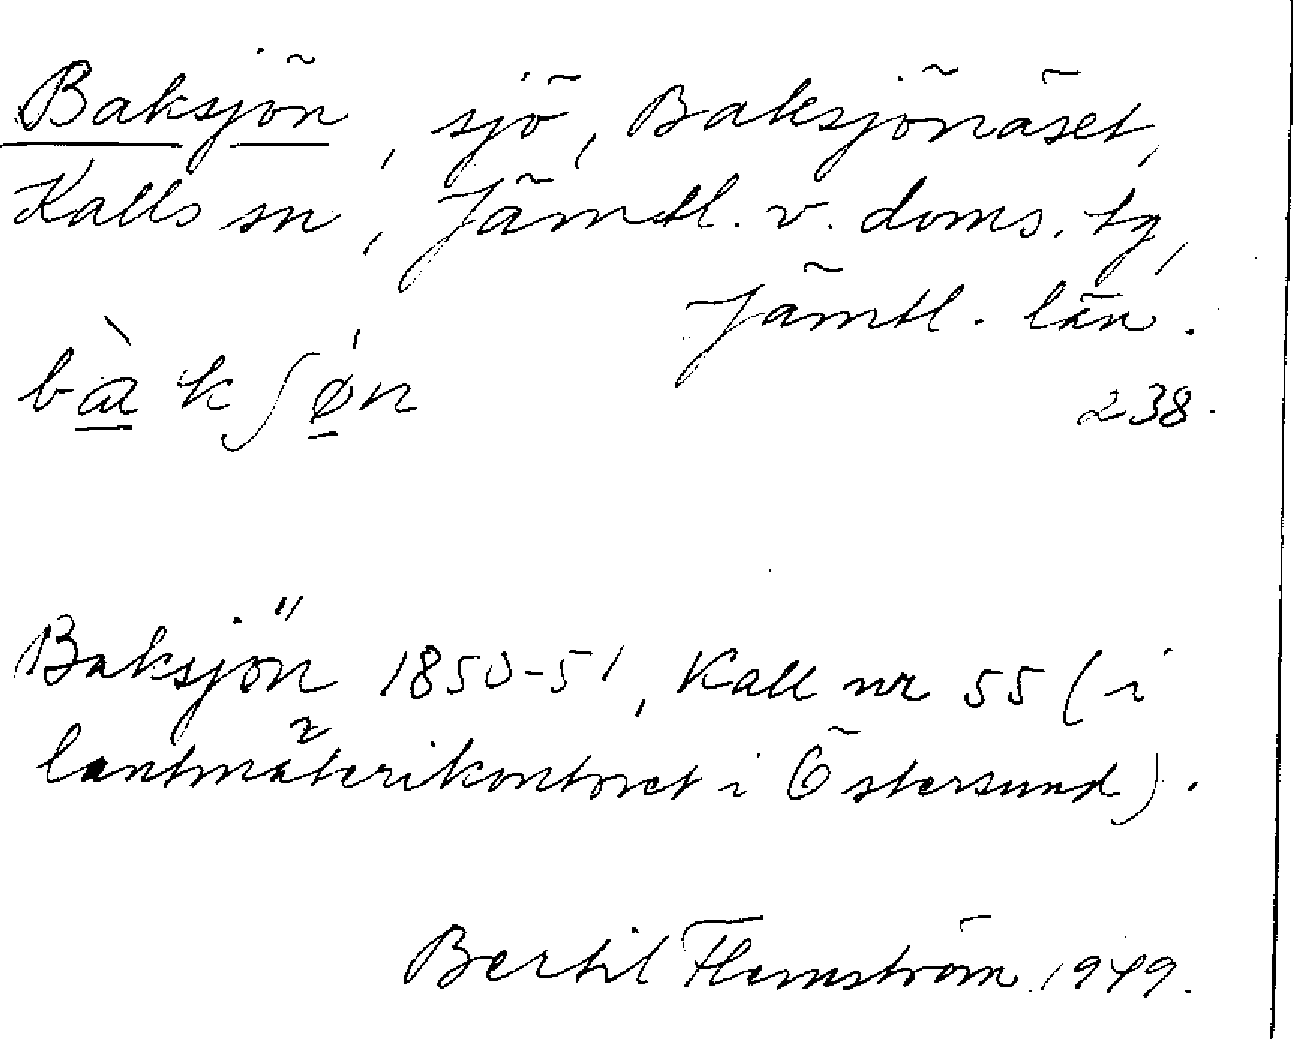 Baksjön, sjö, Baksjönäset,
Kalls sn, Jämtl. v. doms. tg,
Jämtl. län.
bàkʃø̇n
238.
Baksjön 1850-51, Kall nr 55 (i
lantmäterikontoret i Östersund).
Bertil Flemström 1949.